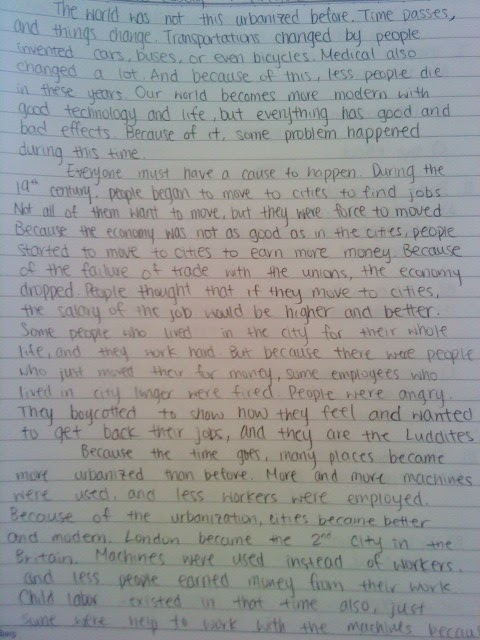 The world was not this urbanized before. Time passes,
and things change. Transportations changed by people
invented cars, buses, or even bicycles. Medical also
changed a lot. And because of this, less people die
in these years. Our world becomes more modern with
good technology and life, but everything has good and
bad effects. Because of it, some problem happened
during this time.
Everyone must have a cause to happen. During the
19th century, people began to move to cities to find jobs.
Not all of them want to move, but they were force to moved.
Because the economy was not as good as in the cities, people
started to move to cities to earn more money. Because
of the failure of trade with the unions, the economy
dropped. People thought that if they move to cities,
the salary of the job would be higher and better.
Some people who lived in the city for their whole
life, and they work hard. But because there were people
who just moved their for money, some employees who
lived in city longer were fired. People were angry.
They boycotted to show how they feel and wanted
to get back their jobs, and they are the Luddites
Because the time goes, many places became
more urbanized than before. More and more machines
were used, and less workers were employed.
Because of the urbanization, cities became better
and modern. London became the 2nd city in the
Britain. Machines were used instead of workers,
and less people earned money from their work.
Child labor existed in that time also, just
some were help to work with the machines becau